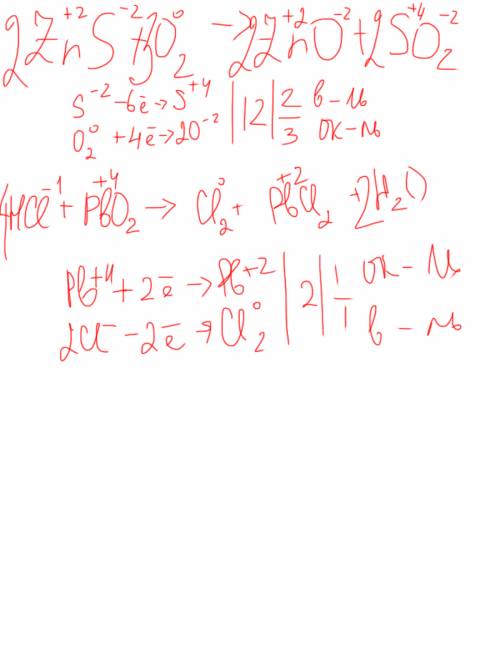 2Zn⁺²S⁻²+3O₂⁰ → 2Zn⁺²O⁻²+2S⁺⁴O₂⁻²
S⁻² -6ē → S⁺⁴ |12| 2 в-ль
O₂⁰ +4ē → 2O⁻² | | 3 ок-ль
4HCl⁻¹ + Pb⁺⁴O₂ → Cl₂⁰ + Pb⁺²Cl₂ +2H₂O
Pb⁺⁴ + 2ē → Pb⁺² |2| 1 ок-ль
2Cl⁻ - 2ē → Cl₂⁰ | | 1 в-ль